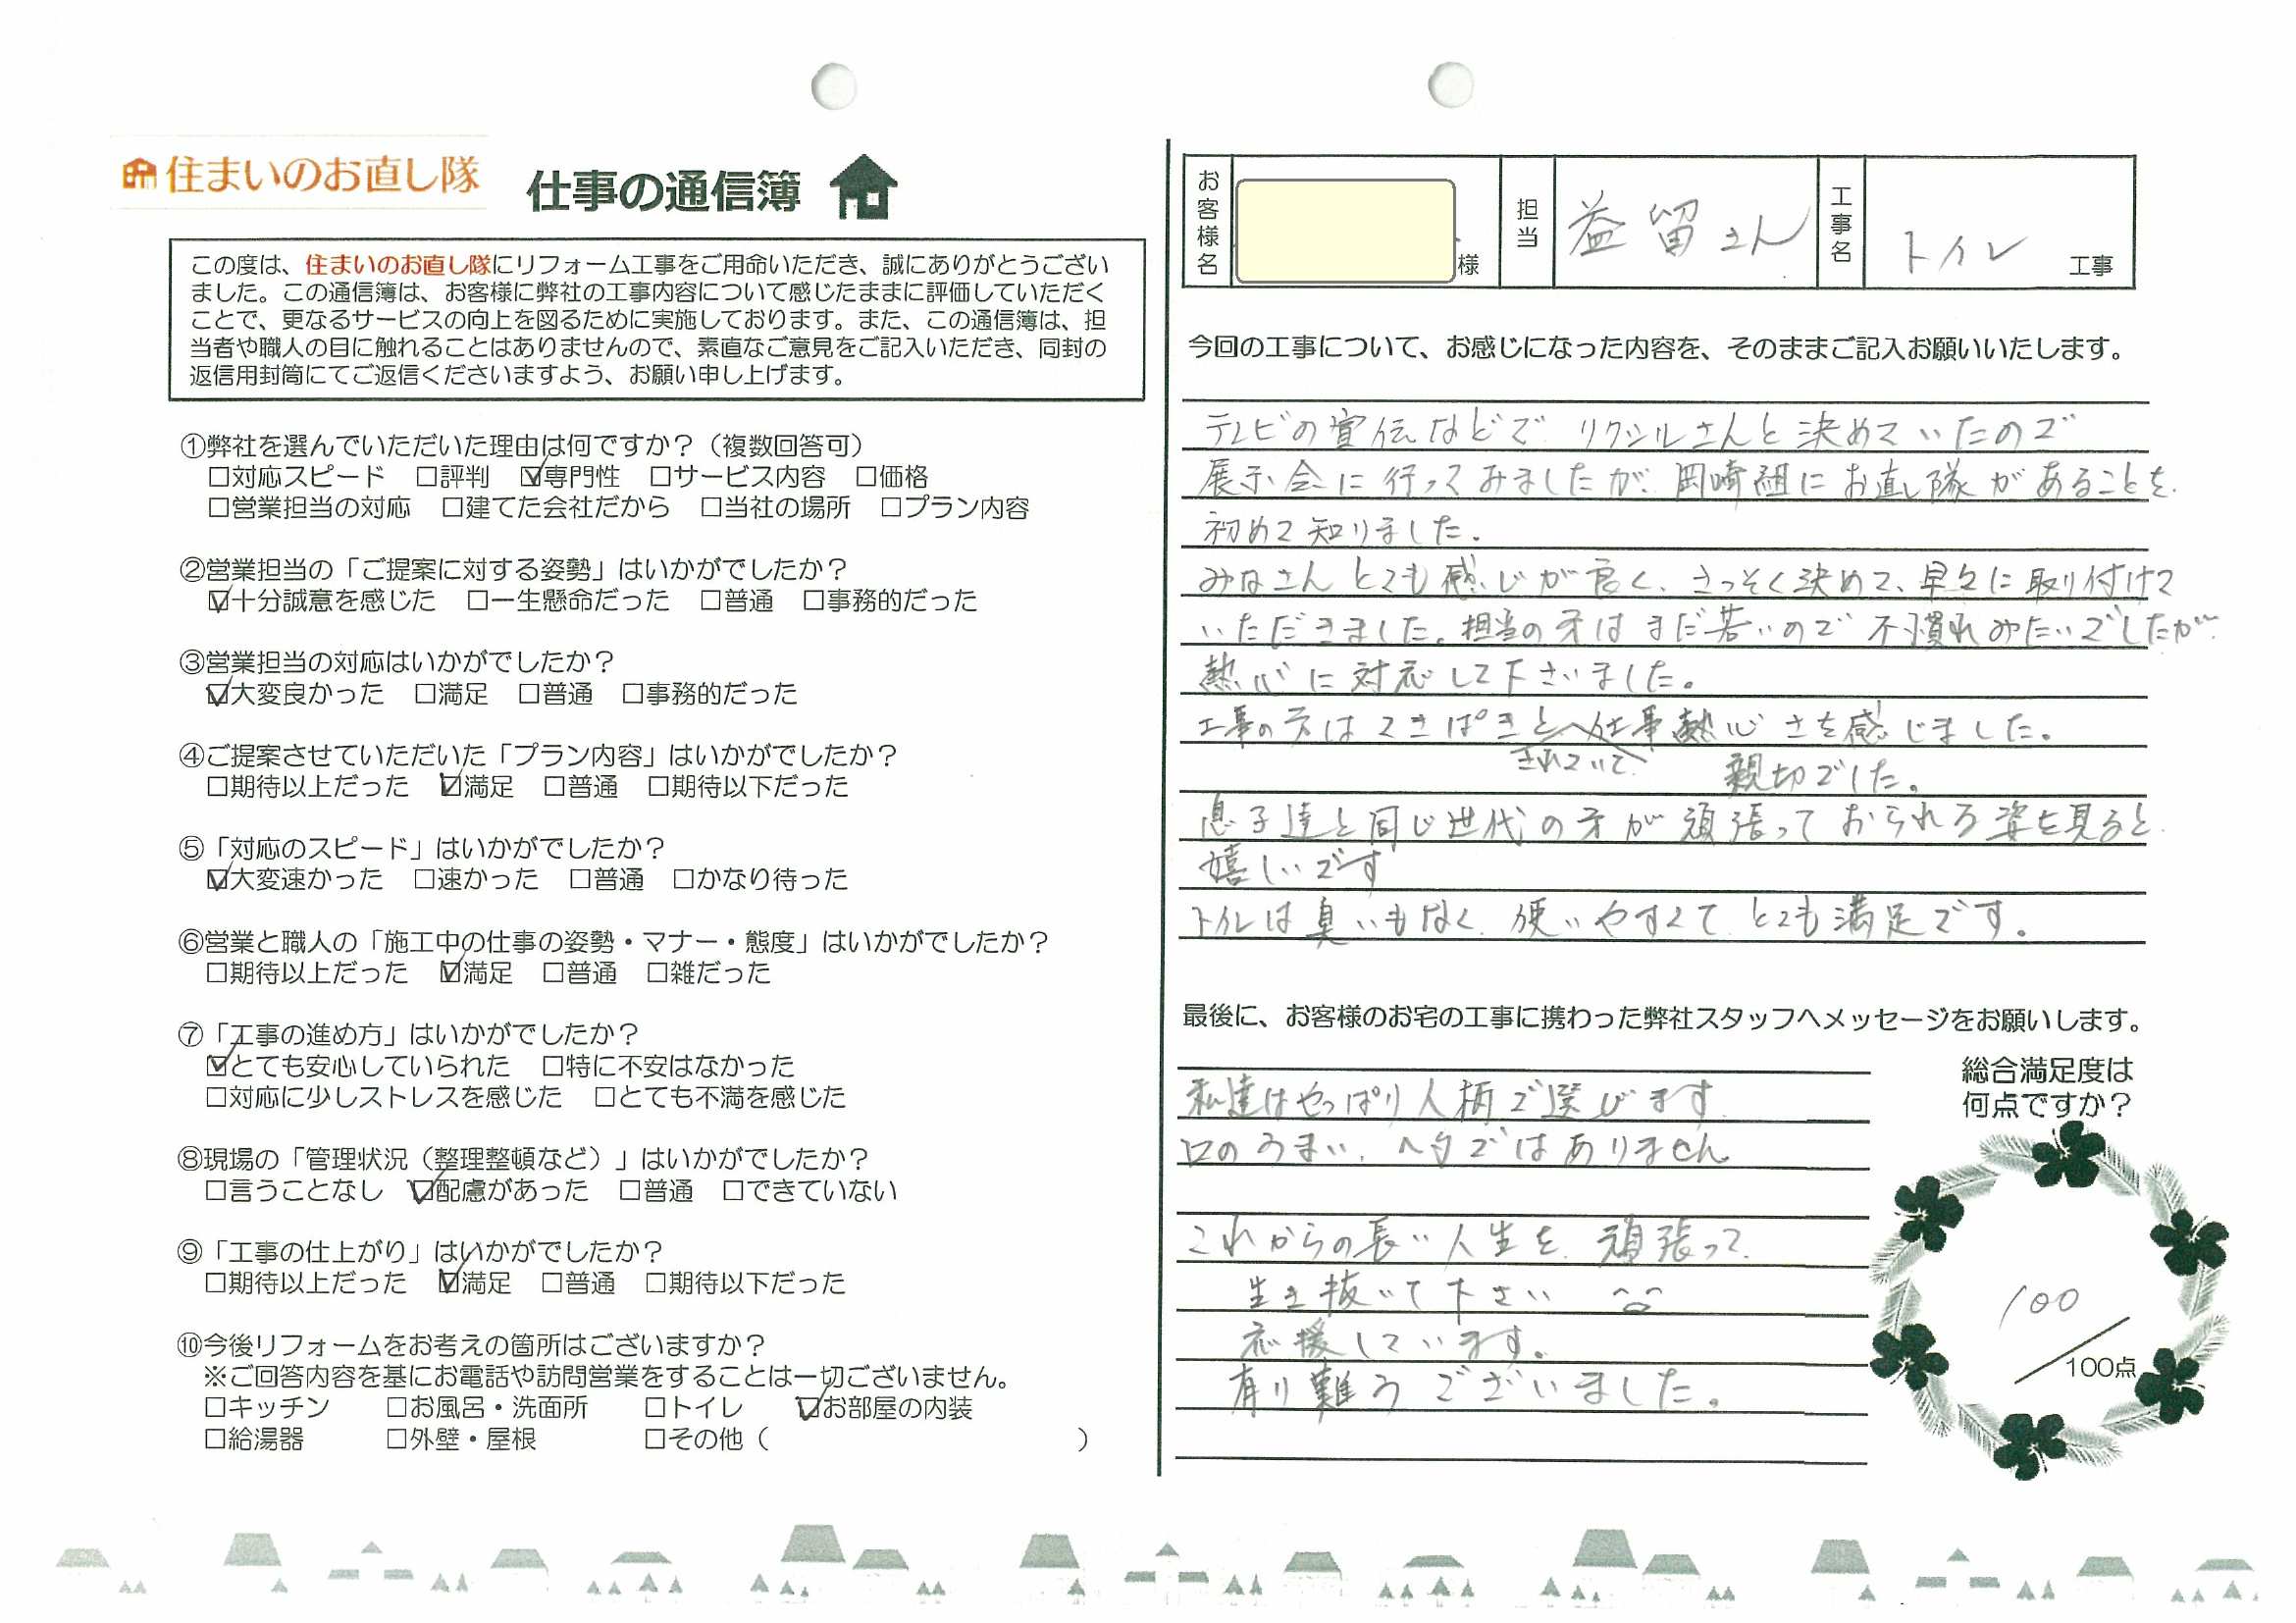 住まいのお直し隊
仕事の通信簿
この度は、住まいのお直し隊にリフォーム工事をご用命いただき、誠にありがとうござい
ました。この通信簿は、お客様に弊社の工事内容について感じたままに評価していただく
ことで、更なるサービスの向上を図るために実施しております。また、この通信簿は、担
当者や職人の目に触れることはありませんので、素直なご意見をご記入いただき、同封の
返信用封筒にてご返信くださいますよう、お願い申し上げます。
①弊社を選んでいただいた理由は何ですか？（複数回答可）
□対応スピード □評判 ☑専門性 □サービス内容 □価格
□営業担当の対応 □建てた会社だから □当社の場所 □プラン内容
②営業担当の「ご提案に対する姿勢」はいかがでしたか？
☑十分誠意を感じた □一生懸命だった □普通 □事務的だった
③営業担当の対応はいかがでしたか？
☑大変良かった □満足 □普通 □事務的だった
④ご提案させていただいた「プラン内容」はいかがでしたか？
□期待以上だった ☑満足 □普通 □期待以下だった
⑤「対応のスピード」はいかがでしたか？
☑大変速かった □速かった □普通 □かなり待った
⑥営業と職人の「施工中の仕事の姿勢・マナー・態度」はいかがでしたか？
□期待以上だった ☑満足 □普通 □雑だった
⑦「工事の進め方」はいかがでしたか？
☑とても安心していられた □特に不安はなかった
□対応に少しストレスを感じた □とても不満を感じた
⑧現場の「管理状況（整理整頓など）」はいかがでしたか？
□言うことなし ☑配慮があった □普通 □できていない
⑨「工事の仕上がり」はいかがでしたか？
□期待以上だった ☑満足 □普通 □期待以下だった
⑩今後リフォームをお考えの箇所はございますか？
※ご回答内容を基にお電話や訪問営業をすることは一切ございません。
□キッチン □お風呂・洗面所 □トイレ ☑お部屋の内装
□給湯器 □外壁・屋根 □その他（ ）
お客様名 様 担当 益留さん 工事名 トイレ 工事
今回の工事について、お感じになった内容を、そのままご記入お願いいたします。
テレビの宣伝などで リクシルさんと決めていたので
展示会に行ってみましたが、岡崎組にお直し隊があることを
初めて知りました。
みなさんとても感じが良く、さっそく決めて、早々に取り付けて
いただきました。担当の方はまだ若いので不慣れみたいでしたが
熱心に対応して下さいました。
工事の方はてきぱきとされていて、仕事熱心さを感じました。
親切でした。
息子達と同じ世代の方が頑張っておられる姿を見ると
嬉しいです
トイレは臭いもなく 使いやすくて とても満足です。
最後に、お客様のお宅の工事に携わった弊社スタッフへメッセージをお願いします。
私達はやっぱり人柄で選びます
口のうまい、ヘタではありません
これからの長い人生を 頑張って
生き抜いて下さい ^^
応援しています。
有り難うございました。
総合満足度は
何点ですか？
100
100点